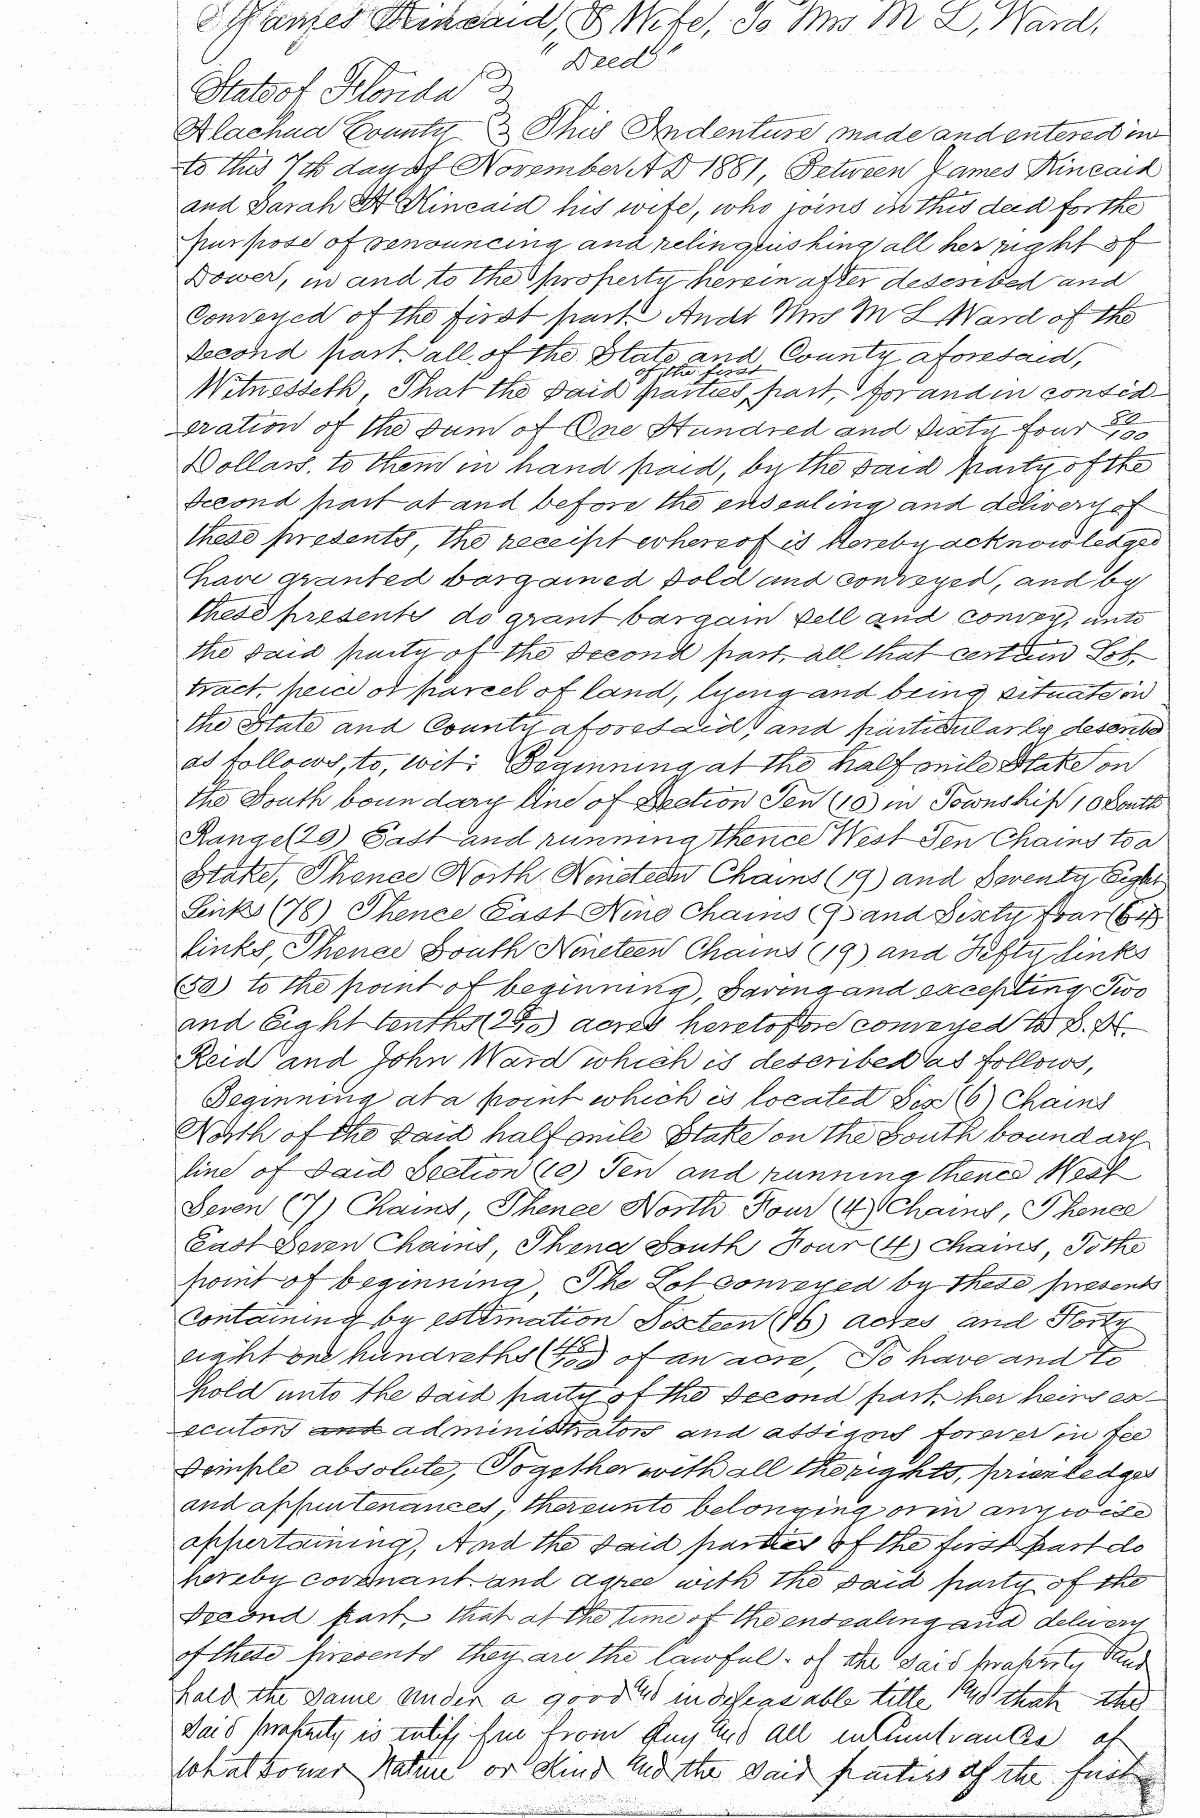 James Kincaid, & Wife, To Mrs M L, Ward,
"Deed"
State of Florida
Alachua County This Indenture made and entered in
to this 7th day of November A D 1881, Between James Kincaid
and Sarah A Kincaid his wife, who joins in this deed for the
purpose of renouncing and relinquishing all her right of
Dower, in and to the property herein after described and
Conveyed of the first part. And Mrs M L Ward of the
second part. all of the State and County aforesaid,
of the first
Witnesseth, That the said parties, part, for and in consid-
eration of the sum of One Hundred and Sixty four 80/100
Dollars, to them in hand paid, by the said party of the
second part at and before the ensealing and delivery of
these presents, the receipt whereof is hereby acknowledged
have granted bargained sold and conveyed, and by
these presents do grant bargain sell and convey, unto
the said party of the second part, all that certain Lot,
tract, peice or parcel of land, lyeng and being situate in
the State and County aforesaid, and particularly described
as follows, to, wit: Beginning at the half mile Stake on
the South boundary line of Section Ten (10) in Township 10 South
Range (20) East and running thence West Ten Chains to a
Stake, Thence North Nineteen Chains (19) and Seventy Eight
Links (78) Thence East Nine Chains (9) and Sixty four (64)
links, Thence South Nineteen Chains (19) and Fifty links
(50) to the point of beginning, Saving and excepting Two
and Eight tenths (2 8/10) acres heretofore conveyed to S. H.
Reid and John Ward which is described as follows,
Beginning at a point which is located Six (6) Chains
North of the said half mile Stake on the South boundary
line of said Section (10) Ten and running thence West
Seven (7) Chains, Thence North Four (4) Chains, Thence
East Seven Chains, Thence South Four (4) Chains, To the
point of beginning, The Lot conveyed by these presents
containing by estimation Sixteen (16) acres and Forty
eight one hundreths (48/100) of an acre, To have and to
hold unto the said party of the second part, her heirs ex-
ecutors and administrators and assigns forever in fee
simple absolute, Together with all the rights, priviledges
and appurtenances, thereunto belonging or in any wise
appertaining, And the said parties of the first part do
hereby covenant and agree with the said party of the
second part, that at the time of the ensealing and delivery
of these presents they are the lawful. of the said property and
hold the same under a good and indefeasable title and that the
said property is entirly free from any and all incumbrances of
whatsoever Nature or Kind and the said parties of the first